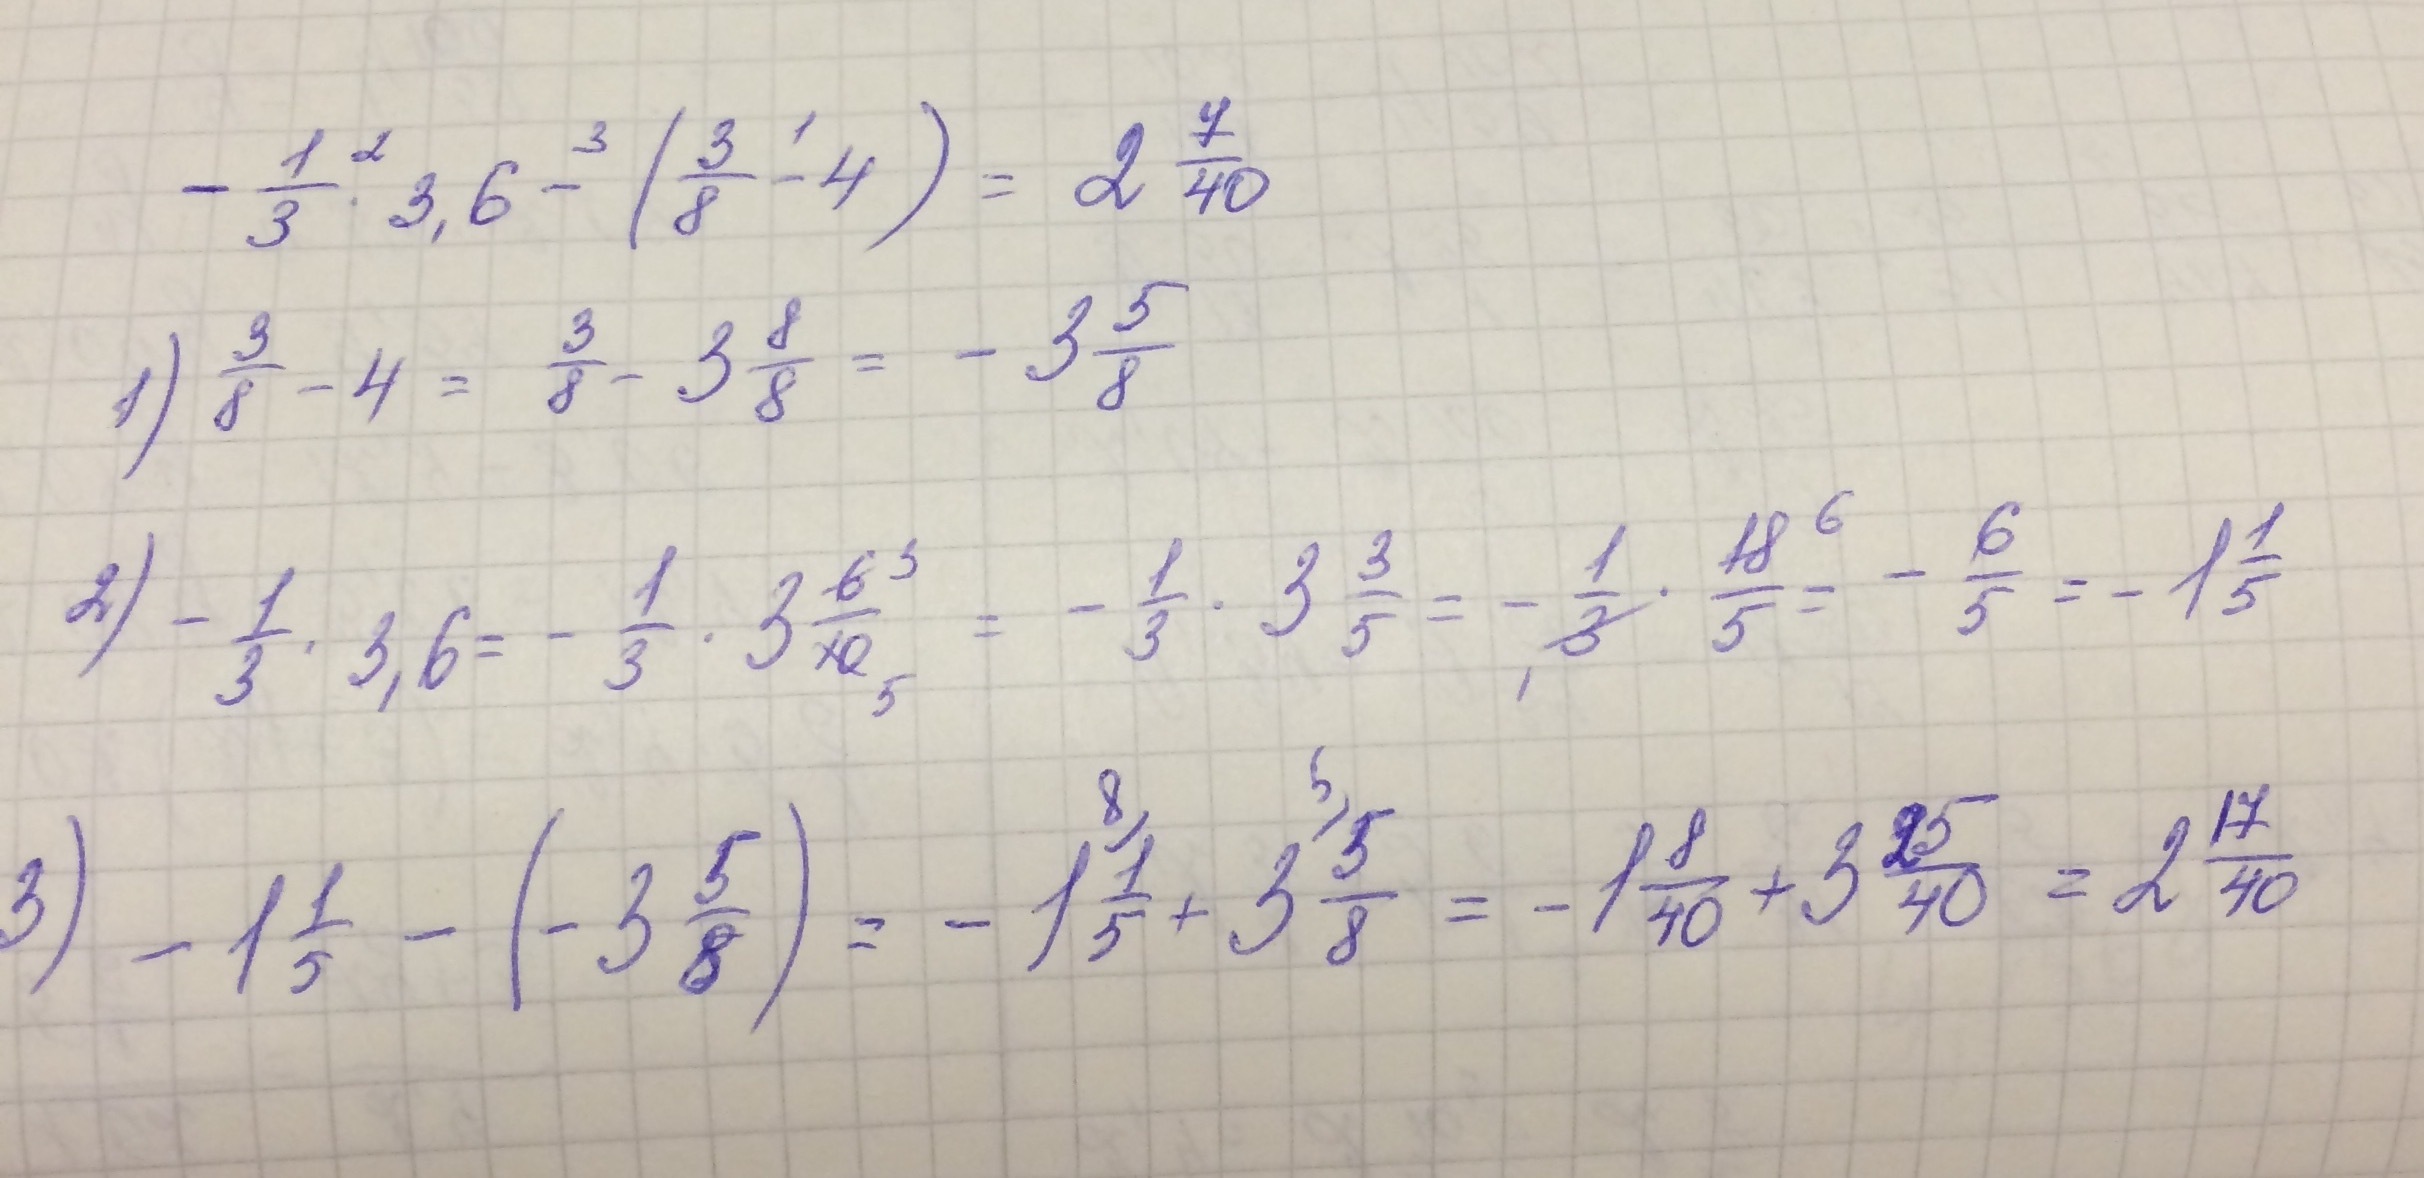 -1/3 · 3,6 - (3/8 - 4) = 2 7/40
1) 3/8 - 4 = 3/8 - 3 8/8 = - 3 5/8
2) - 1/3 · 3,6 = - 1/3 · 3 6/10 = - 1/3 · 3 3/5 = - 1/3 · 18/5 = - 6/5 = - 1 1/5
3) - 1 1/5 - (- 3 5/8) = - 1 1/5 + 3 5/8 = - 1 8/40 + 3 25/40 = 2 17/40